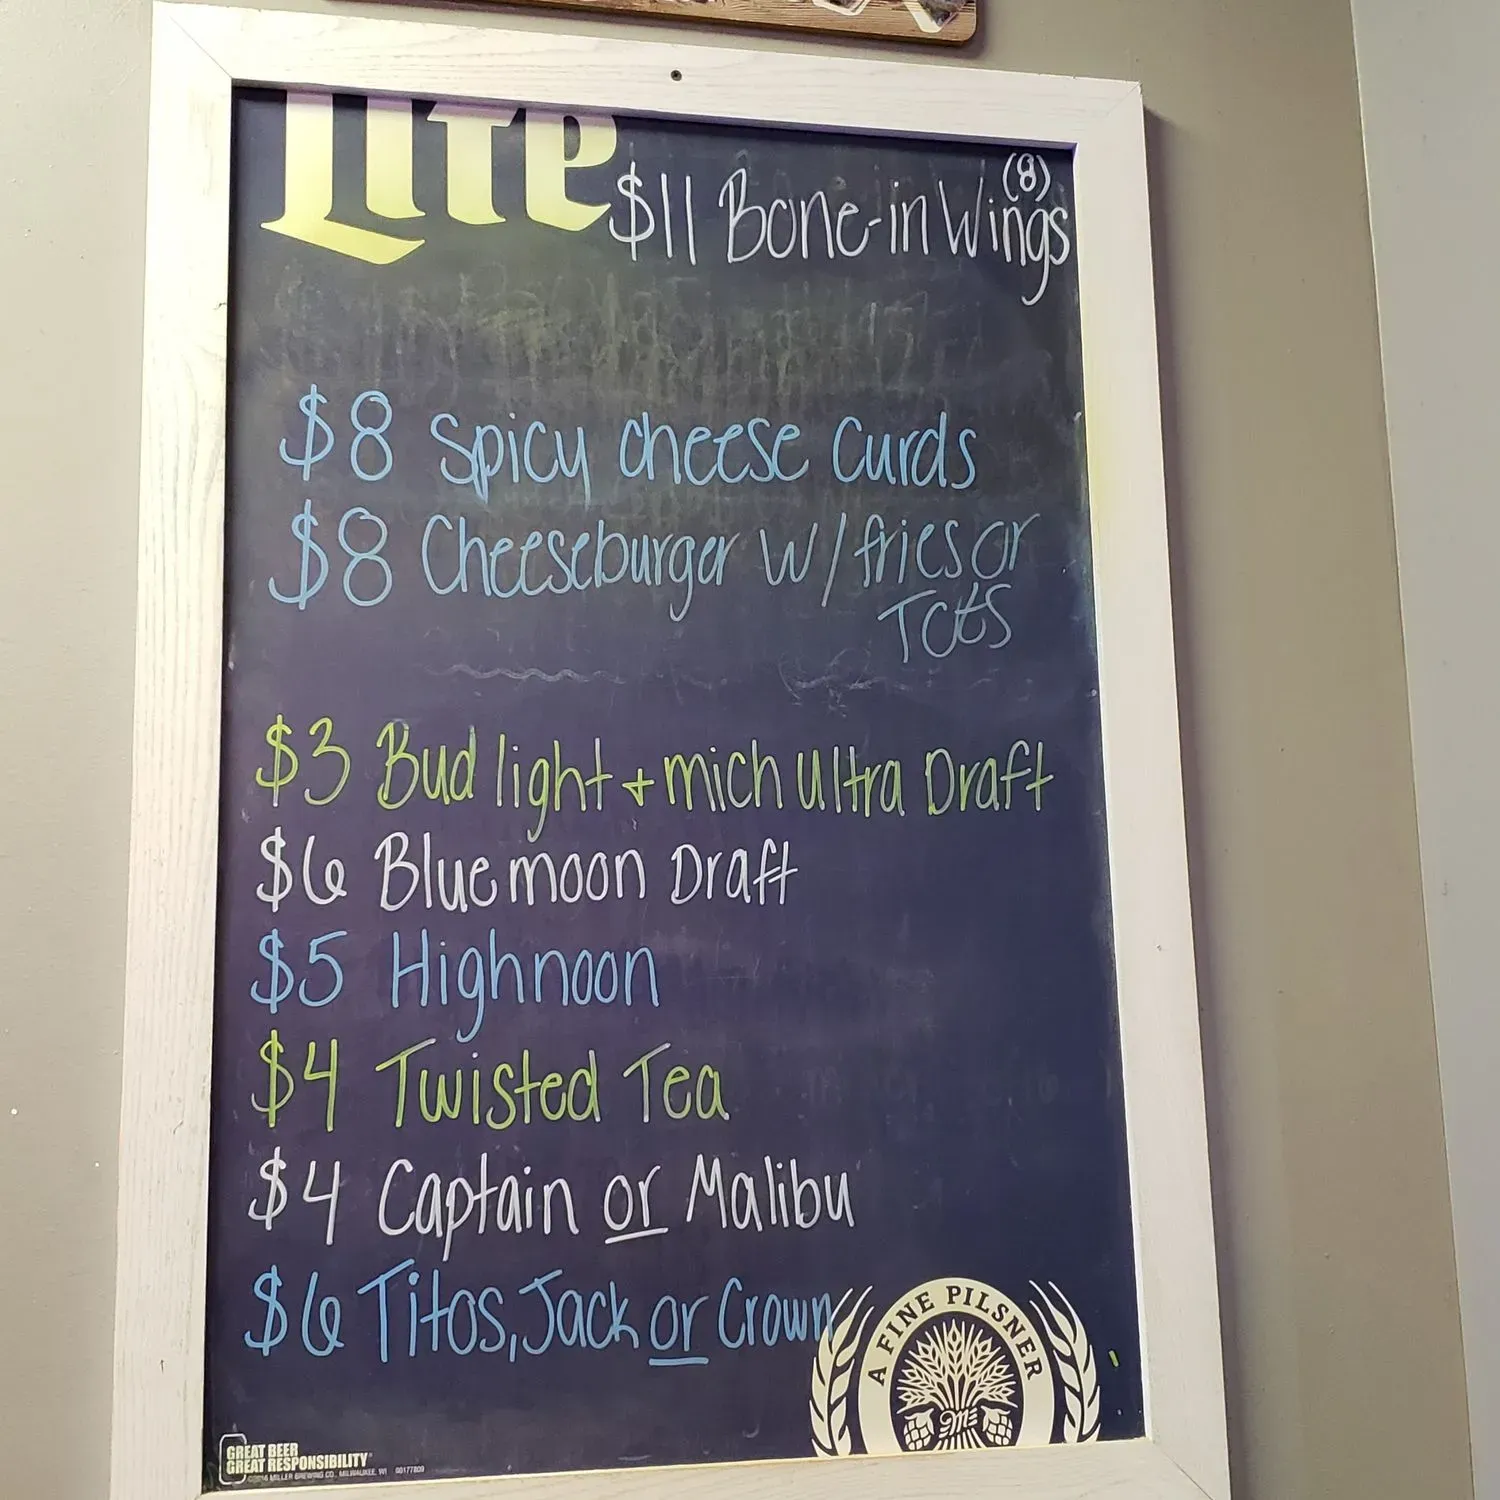 Lite
(8)
$11 Bone-in Wings
$8 Spicy cheese curds
$8 Cheeseburger w/fries or
Tots
$3 Bud light + mich ultra Draft
$6 Blue moon Draft
$5 Highnoon
$4 Twisted Tea
$4 Captain or Malibu
$6 Titos, Jack or Crown
A FINE PILSNER
GREAT BEER
GREAT RESPONSIBILITY®
©2016 MILLER BREWING CO., MILWAUKEE, WI 00177809